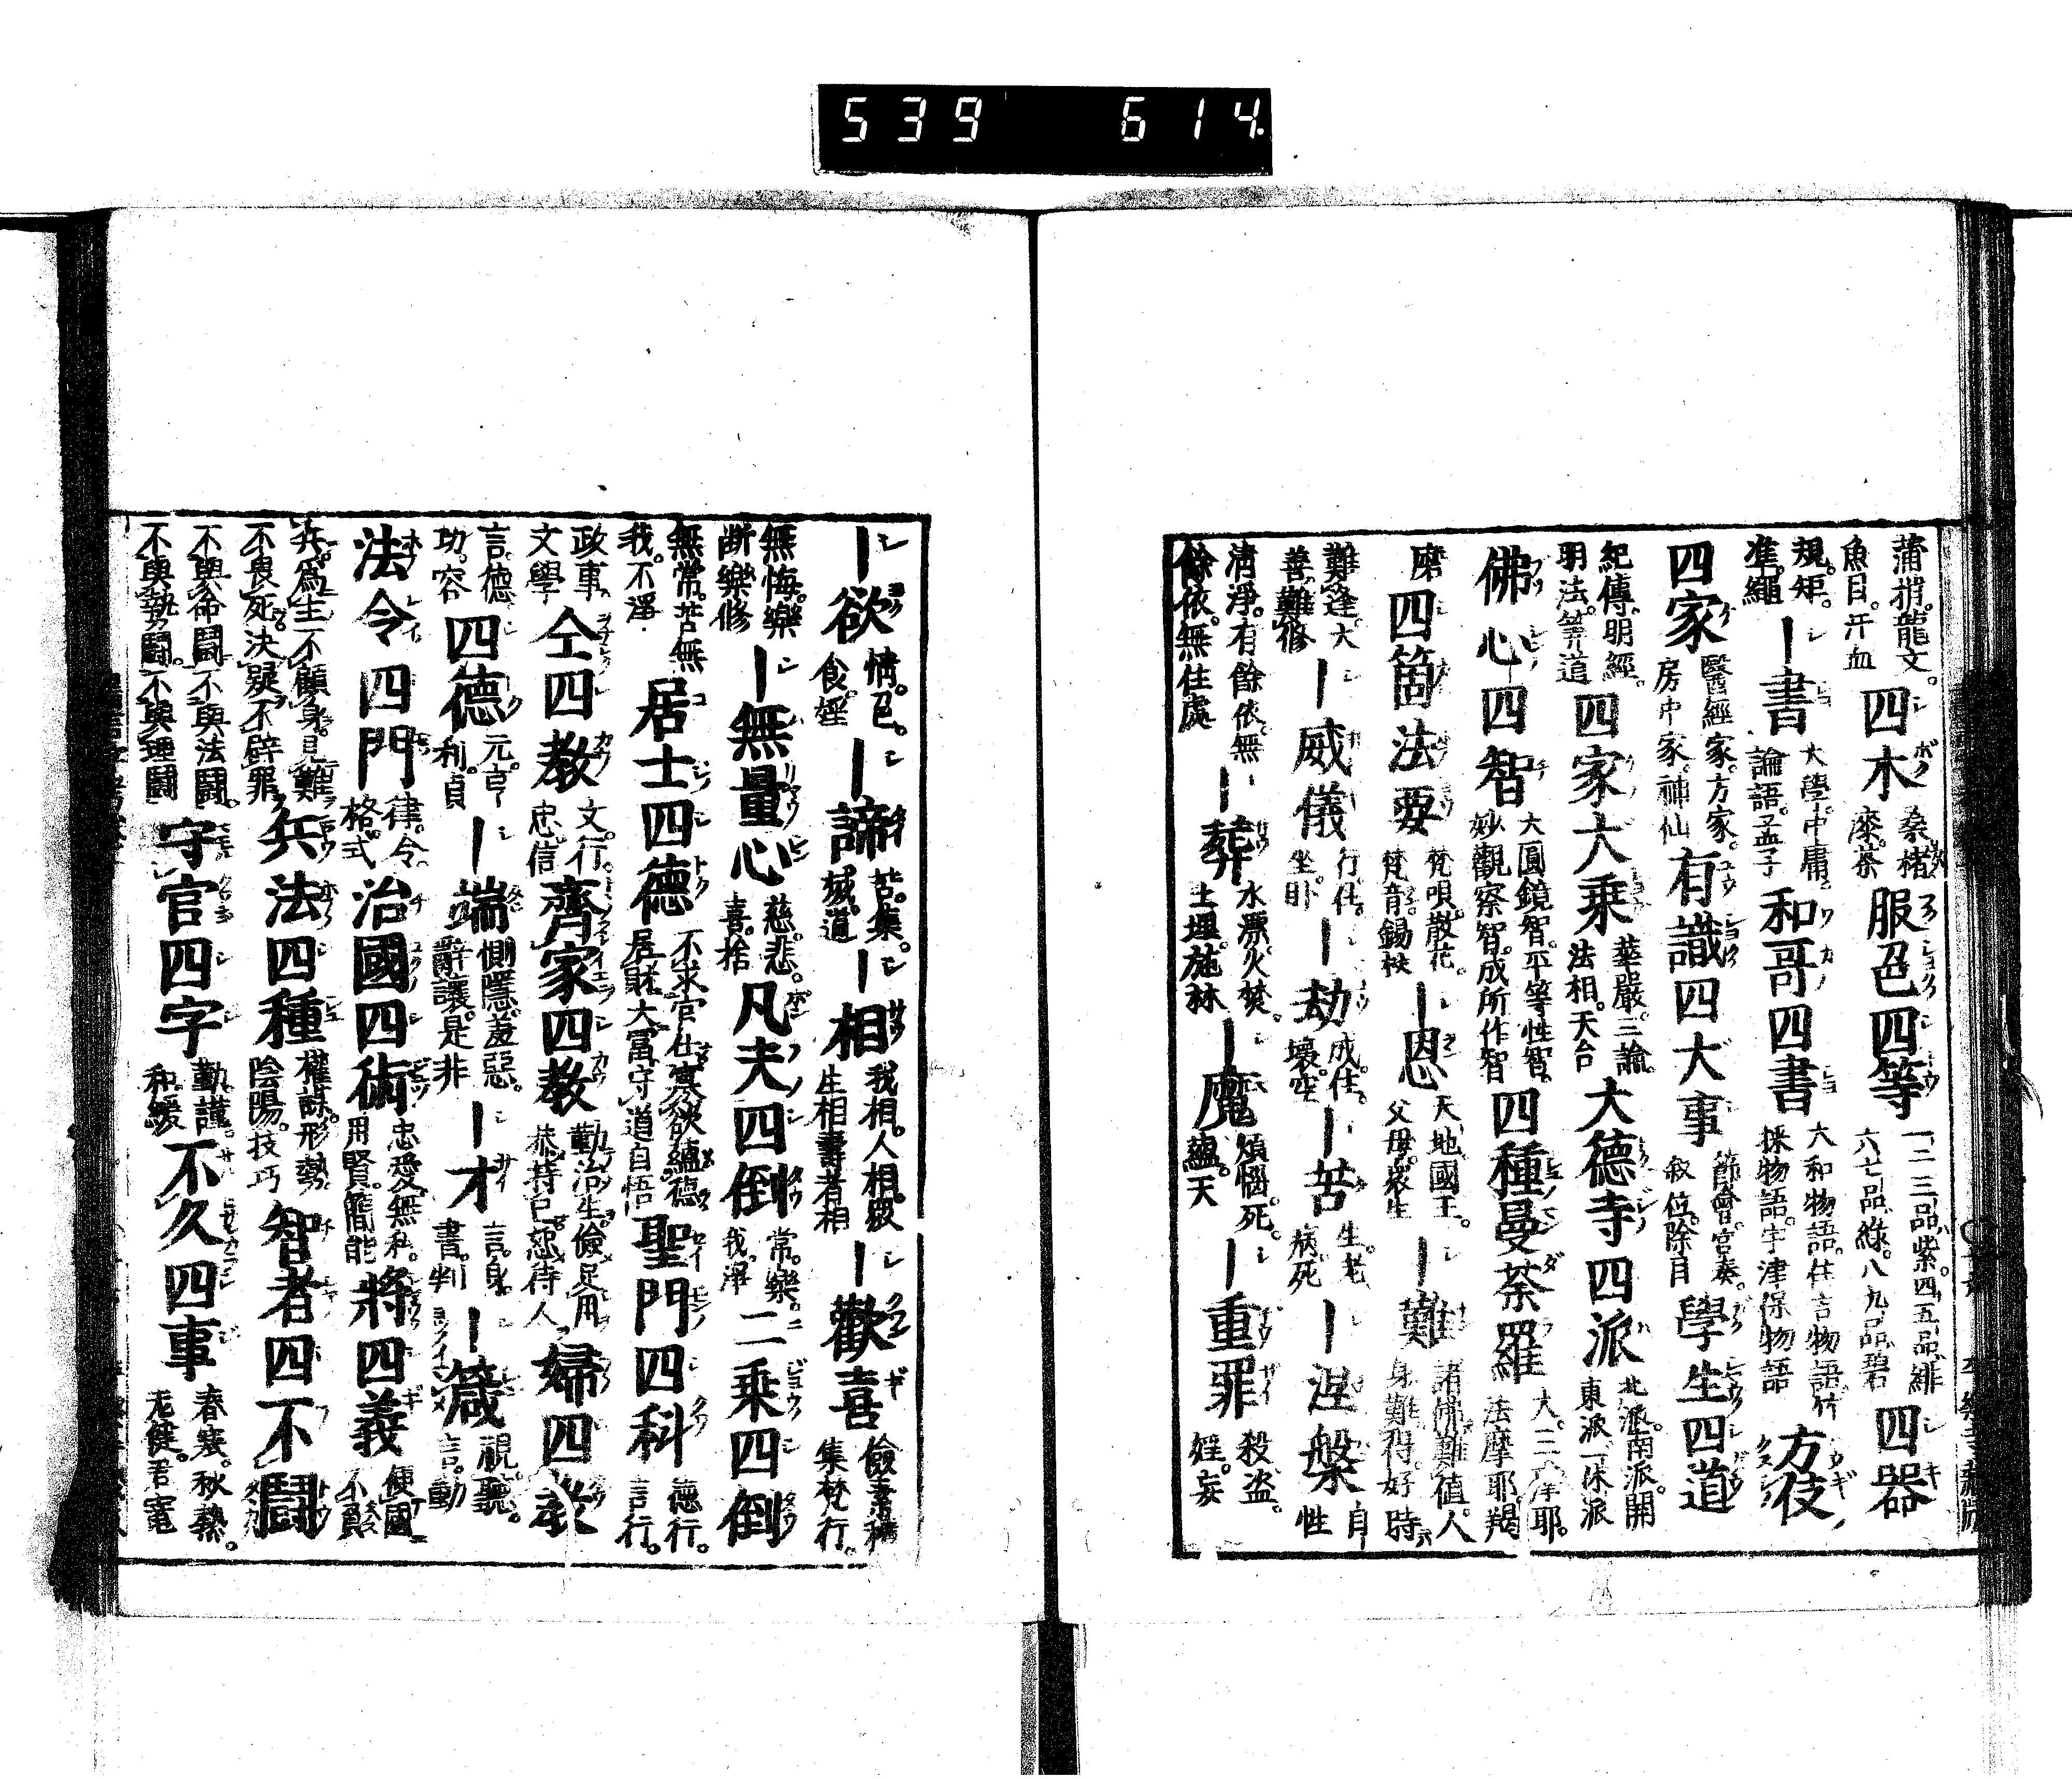 539 614
蒲梢。龍文。魚目。汗血 四木 桑。楮漆。茶 服色四等 一二三品紫。四五品緋六七品綠。八九品碧 四器
規。矩。準。繩 ー書 大學。中庸論語。孟子 和哥四書 大和物語。住吉物語。竹採物語。宇津保物語 方伎
四家 醫經家。方家。房中家。神仙 有識四大事 節會。宮奏。叙位。除目 學生四道
紀傳。明經。明法。筭道 四家大乗 華嚴。三論。法相。天台 大德寺四派 北派。南派。開東派。一休派
佛心四智 大圓鏡智。平等性智。妙觀察智。成所作智 四種曼荼羅 大。三摩耶。法摩耶。羯
摩 四箇法要 梵唄。散花。梵音。錫杖 ー恩 天地。國王。父母。衆生 ー難 諸佛難値。人身難得。好時
難逢。大善難修 ー威儀 行。住。坐。卧 ー劫 成。住。壞。空 ー苦 生。老。病。死 ー涅槃 自性
清淨。有餘依。無餘依。無住處 ー葬 水漂。火焚。土埋。施林 ー魔 煩惱。死。蘊。天 ー重罪 殺。盗。婬。妄
ー欲 情。色。食。婬 ー諦 苦。集。滅。道 ー相 我相。人相。衆生相。壽者相 ー歡喜 儉素。稱集。梵行。
無悔。樂断。樂修 ー無量心 慈。悲。喜。捨 凡夫四倒 常。樂。我。淨 二乗四倒
無常。苦。無我。不淨 居士四德 不求官仕。寡欲蘊德居財大富。守道自悟 聖門四科 德行。言行。
政事文學 仝四教 文。行。忠。信 齊家四教 勤治生。儉足用恭持己。恕待人 婦四教
言。德功。容 四德 元。亨利。貞 ー端 惻隱。羞惡。辭讓。是非 ー才 言。身。書。判 ー箴 視。聽。言。動
法令四門 律。令。格。式 治國四術 忠愛。無私。用賢。簡能 將四義 便國不負
兵。爲主不顧身。見難不畏死。決疑不辟罪 兵法四種 權謀。形勢。陰陽。技巧 智者四不鬪
不與命鬪。不與法鬪。不與勢鬪。不與理鬪 守官四字 勤。謹。和。緩 不久四事 春寒。秋熱。老健。君寵